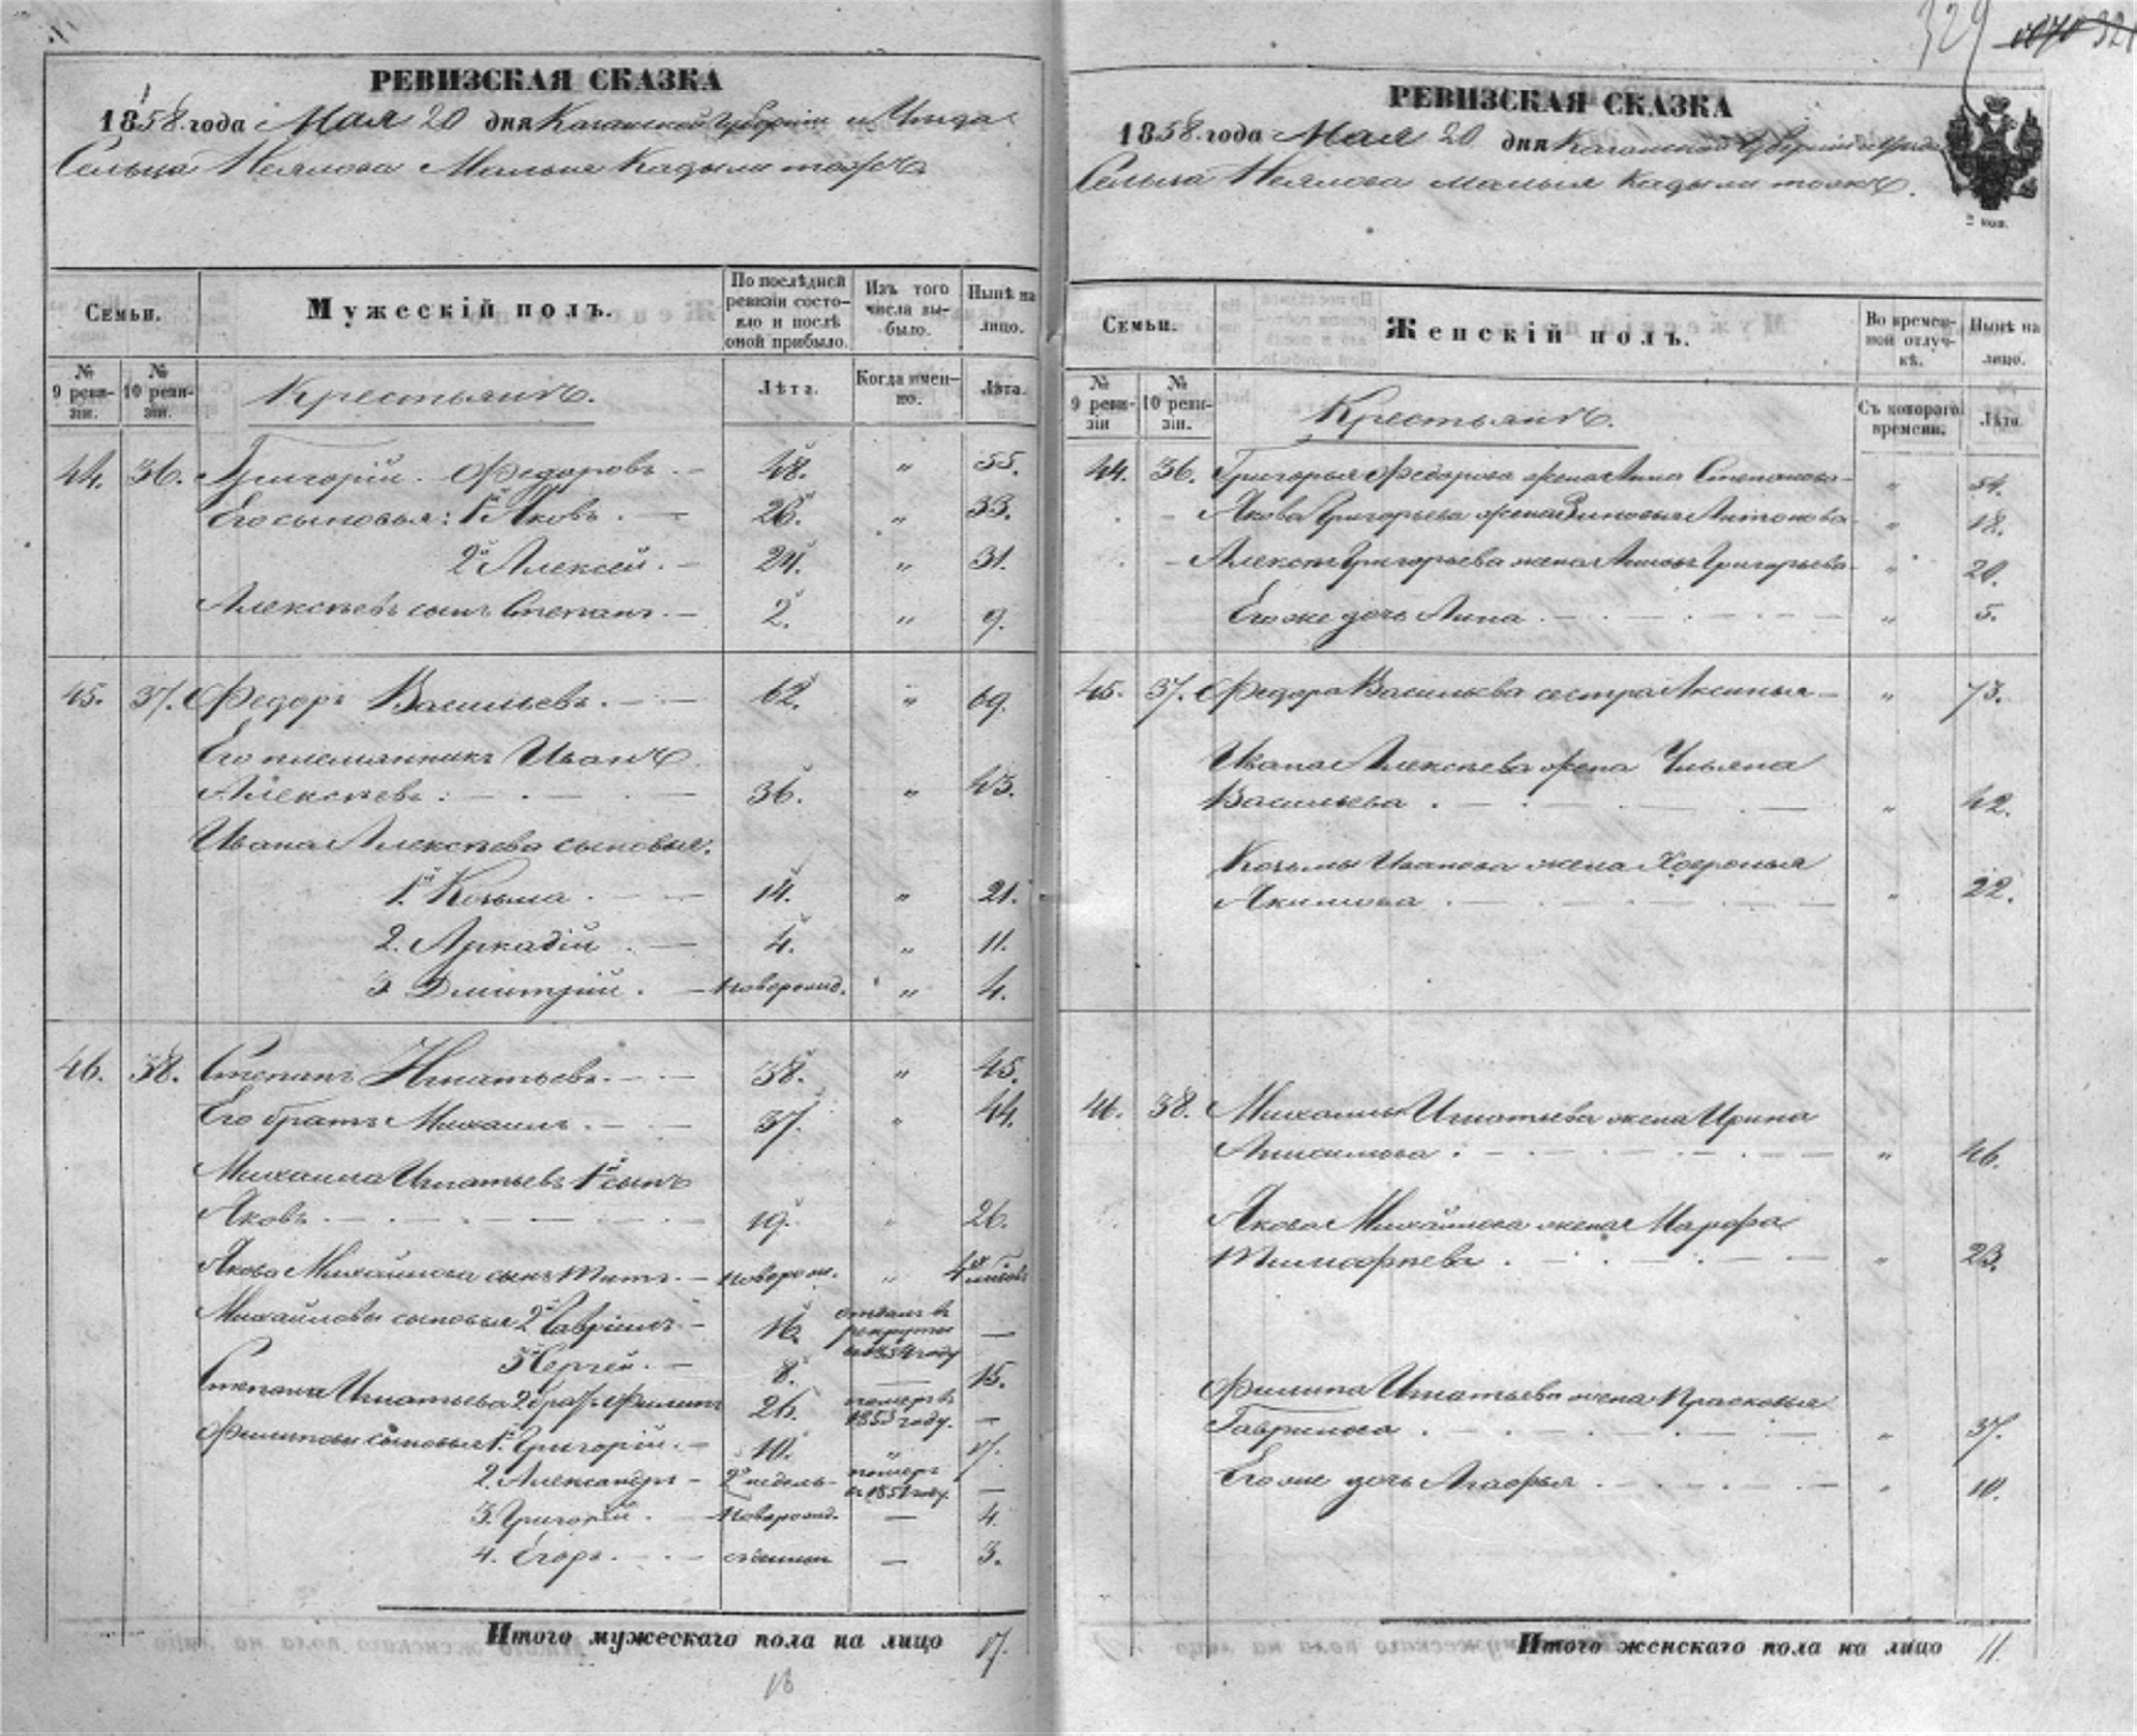 РЕВИЗСКАЯ СКАЗКА
1858 года Мая 20 дня Казанской Губернии и Уезда
Сельца Неялова Малыя Кадыли тожъ
Семьи.
Мужескій полъ.
По послѣдней ревизіи состояло и послѣ оной прибыло.
Изъ того числа выбыло.
Нынѣ на лицо.
№ 9 ревизіи.
№ 10 ревизіи.
Крестьянъ.
Лѣта.
Когда именно.
Лѣта.
44. 36. Григорій Федоровъ. 48. " 55.
Его сыновья: 1й Яковъ. 26. " 33.
2й Алексей. 24. " 31.
Алексѣевъ сынъ Степанъ. 2. " 9.
45. 37. Федоръ Васильевъ. 62. " 69.
Его племянникъ Иванъ
Алексѣевъ: 36. " 43.
Ивана Алексѣева сыновья.
1й Козьма. 14. " 21.
2. Аркадій. 4. " 11.
3 Дмитрій. новорожд. " 4.
46. 38. Степанъ Игнатьевъ. 38. " 45.
Его братъ Михаилъ. 37. " 44.
Михаила Игнатьевъ 1й сынъ
Яковъ 19. " 26.
Якова Михайлова сынъ Титъ. новорож. "
Михайловы сыновья 2й Гаврилъ 16. отданъ въ рекруты въ 1854 году —
3й Сергей. 8. — 15.
Степана Игнатьева 2 братъ Филипъ 26. померъ въ 1855 году. —
Филиповы сыновья 1й Григорій. 10. " 17.
2. Александръ 2 недель померъ въ 1851 году. —
3. Григорій. новорожд. — 4.
4. Егоръ. — 3.
Итого мужескаго пола на лицо 17.
18
329
321
РЕВИЗСКАЯ СКАЗКА
1858 года Мая 20 дня Казанской Губерніи и Уезда
Сельца Неялова Малыя Кадыли тожъ.
2 коп.
Семьи.
Женскій полъ.
Во временной отлучкѣ.
Нынѣ на лицо.
№ 9 ревизіи
№ 10 ревизіи.
Крестьянъ.
Съ котораго времени.
Лѣта.
44. 36. Григорья Федорова жена Анна Степанова " 54.
Якова Григорьева жена Зиновья Антонова " 18.
Алексея Григорьева жена Григорьева " 20.
Его же дочь Анна " 5.
45. 37. Федора Васильева сестра Аксинья " 73.
Ивана Алексѣева жена Ульяна
Васильева. " 42.
Козьмы Иванова жена Хоронья
Акимова " 22.
46. 38. Михаилы Игнатьева жена Ирина
Анисимова. " 46.
Якова Михайлова жена Марфа
Тимофѣева. " 23.
Филипа Игнатьева жена Прасковья
Гаврилова. " 37.
Его же дочь Агафья " 10.
Итого женскаго пола на лицо 11.